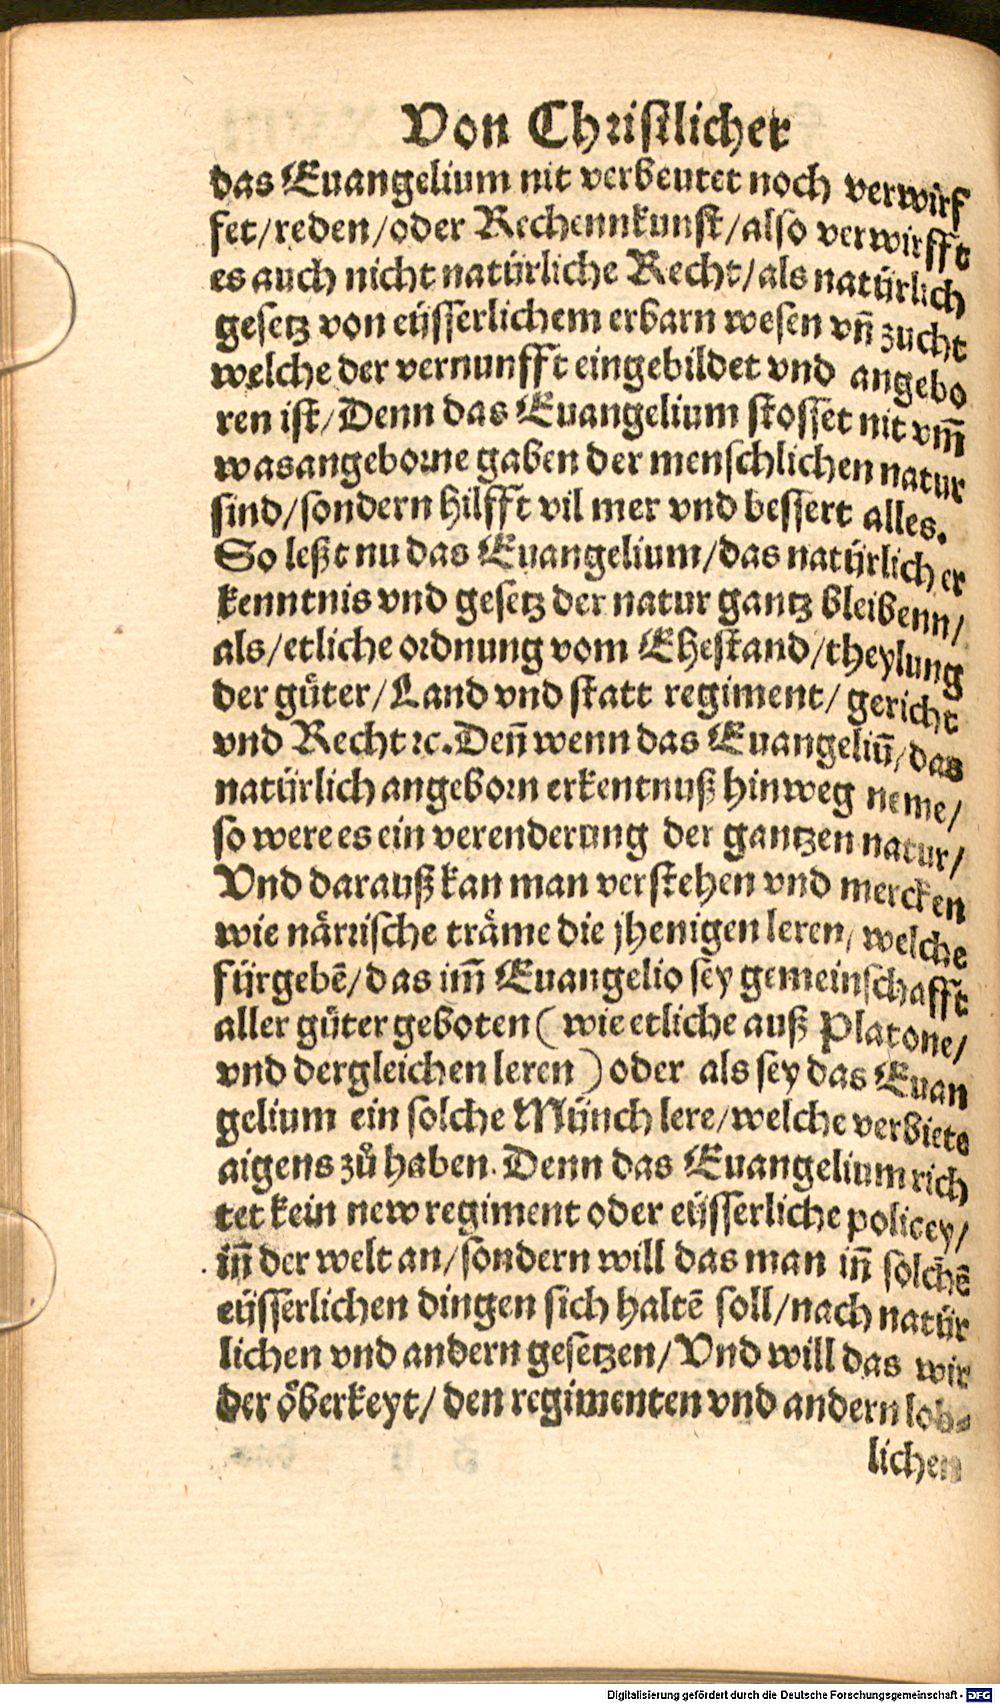 Von Christlicher
das Euangelium nit verbeutet noch verwirf
fet/reden/oder Rechennkunst/also verwirfft
es auch nicht natürliche Recht/als natürlich
gesetz von eüsserlichem erbarn wesen vn̄ zucht
welche der vernunfft eingebildet vnd angebo
ren ist/Denn das Euangelium stosset nit vm̄
was angeborne gaben der menschlichen natur
sind/sondern hilfft vil mer vnd bessert alles.
So leßt nu das Euangelium/das natürlich er
kenntnis vnd gesetz der natur gantz bleibenn/
als/etliche ordnung vom Ehestand/theylung
der gůter/Land vnd statt regiment/gericht
vnd Recht ꝛc. Den̄ wenn das Euangeliū/das
natürlich angeborn erkentnuß hinweg neme/
so were es ein verenderung der gantzen natur/
Vnd darauß kan man verstehen vnd mercken
wie nårrische tråme die jhenigen leren/welche
fürgebē/das im̄ Euangelio sey gemeinschafft
aller gůter geboten (wie etliche auß Platone/
vnd dergleichen leren) oder als sey das Euan
gelium ein solche Münch lere/welche verbiete
aigens zů haben. Denn das Euangelium rich
tet kein new regiment oder eüsserliche policey/
in̄ der welt an/sondern will das man in̄ solchē
eüsserlichen dingen sich haltē soll/nach natür
lichen vnd andern gesetzen/Vnd will das wir
der öberkeyt/den regimenten vnd andern lob⸗
lichen
Digitalisierung gefördert durch die Deutsche Forschungsgemeinschaft - DFG